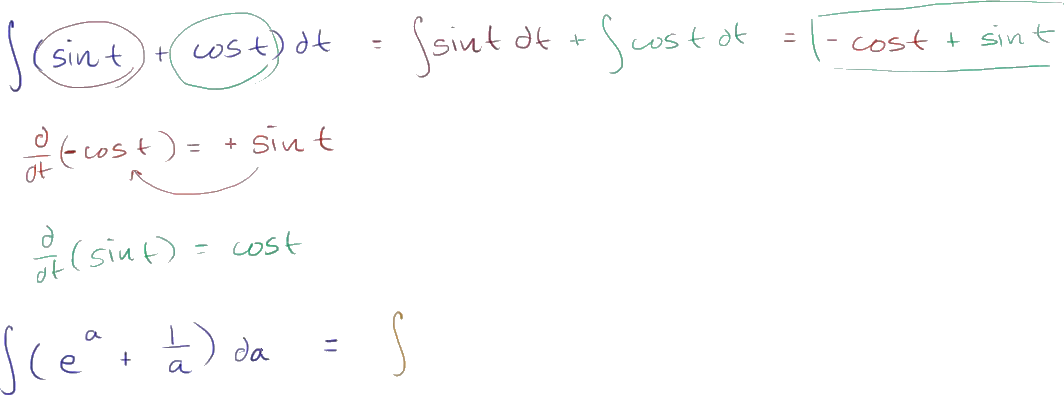 ∫(sin t + cos t) dt = ∫sin t dt + ∫cos t dt = - cos t + sin t
d/dt (- cos t) = + sin t
d/dt (sin t) = cos t
∫(e^a + 1/a) da = ∫